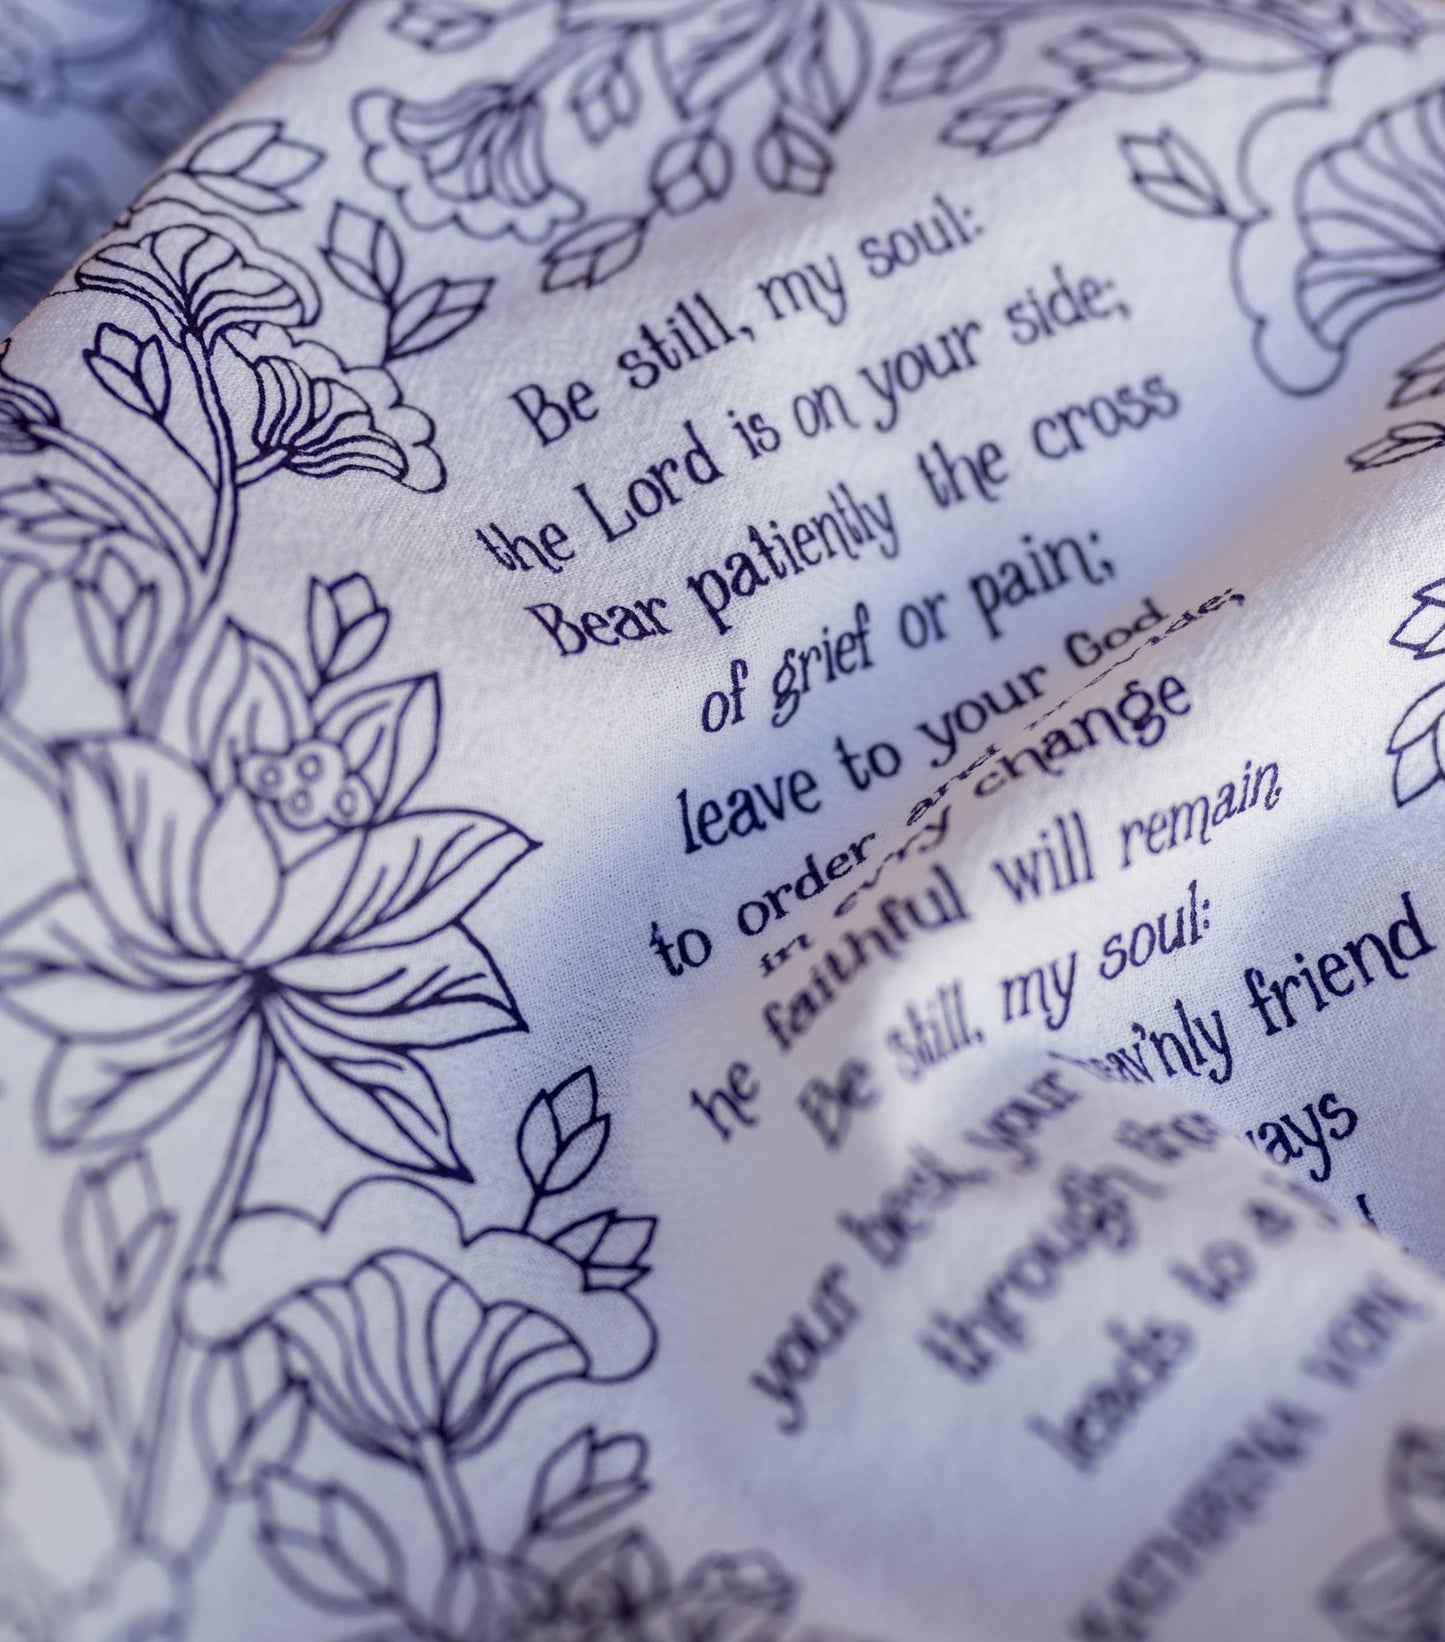 Be still, my soul:
the Lord is on your side;
Bear patiently the cross
of grief or pain;
leave to your God
to order and
in every change
he faithful will remain
Be still, my soul:
your best, your heav'nly friend
through
leads to a
KATHARINA VON